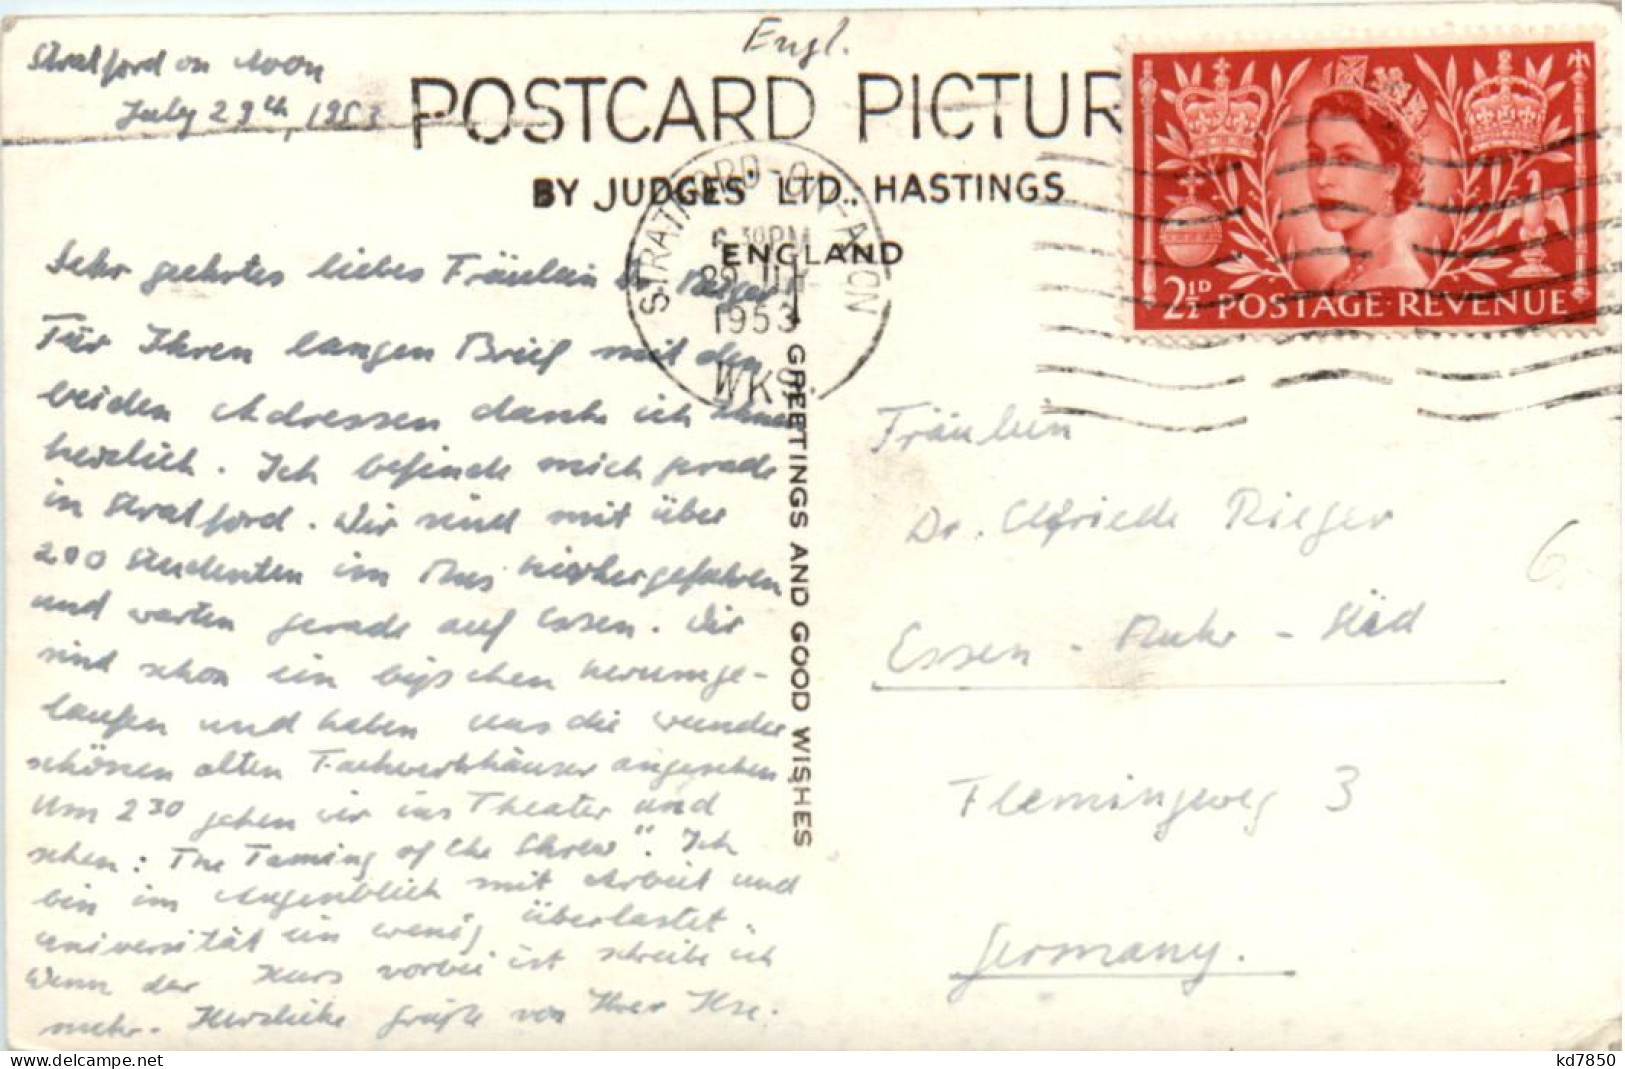 Engl.
Stratford on Avon
July 29th, 1953
POSTCARD PICTUR
BY JUDGES' LTD., HASTINGS
ENGLAND
STRATFORD-ON-AVON
6 30 PM
29 JLY
1953
2½D POSTAGE REVENUE
GREETINGS AND GOOD WISHES
Sehr geehrtes liebes Fräulein Dr. Rieger!
Für Ihren langen Brief mit den
beiden Adressen danke ich Ihnen
herzlich. Ich befinde mich gerade
in Stratford. Wir sind mit über
200 Studenten im Bus hierhergefahren
und warten gerade auf Essen. Wir
sind schon ein bißchen herumge-
laufen und haben uns die wunder
schönen alten Fachwerkhäuser angesehen
Um 2 30 gehen wir ins Theater und
sehen: The Taming of the Shrew". Ich
bin im Augenblick mit Arbeit und
Universität ein wenig überlastet.
Wenn der Kurs vorbei ist schreibe ich
mehr. Herzliche Grüße von Ihrer Ilse.
Fräulein
Dr. Elfriede Rieger
Essen - Ruhr - Süd
Flemingweg 3
Germany.
6
kd7850